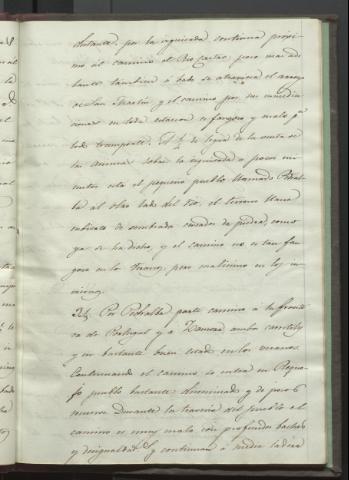 distante, por la izquierda continua proxi
mo al camino el Rio Castro, pero mas ade
lante tambien á bado se atraviesa el arroyo
de San Martin y el camino por sus inmedia
ciones en toda estacion es fangoso y malo pa
todo transporte. A ¼ de legua de la venta se
camina sobre la izquierda a pocos mi
nutos esta el pequeño pueblo llamado Pedral
ba al otro lado del rio, el terreno llano
de sembrado cercados de piedra como
ya se ha dicho, y el camino no es tan fan
goso en lo pero malisimo en los in
viernos.
Por Pedralba parte camino á la fronte
ra de Portugal y a ambos carretiles
y en bastante buen estado en los veranos.
Continuando el camino, se entra en Requej
o, pueblo bastante diseminado y de pocos
recursos. Durante la travesia del pueblo el
camino es muy malo con profundos baches
y desigualdad. y continuan á media ladera